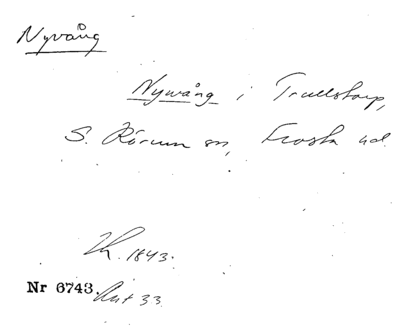 Nyvång
Nywång i Trulstorp,
S. Rörum sn, Frosta hd.
1843.
Nr 6743. Ant 33.